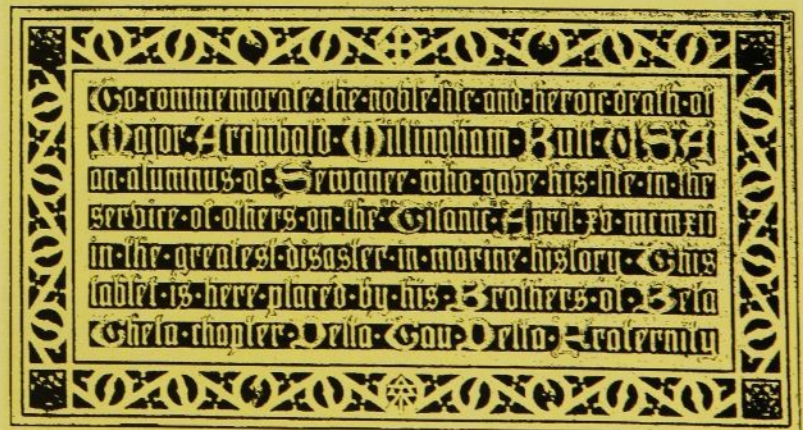 To·commemorate·the·noble·life·and·heroic·death·of
Major·Archibald·Willingham·Butt·USA
an·alumnus·of·Sewanee·who·gave·his·life·in·the
service·of·others·on·the·Titanic·April·xv·mcmxii
in·the·greatest·disaster·in·marine·history·This
tablet·is·here·placed·by·his·Brothers·of·Beta
Theta·chapter·Delta·Tau·Delta·Fraternity